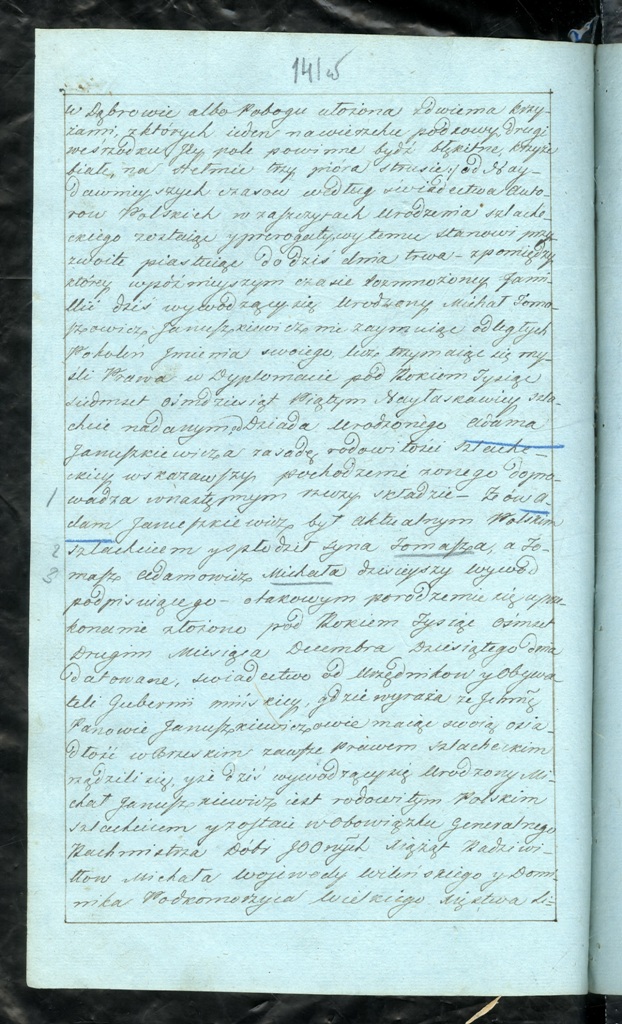 141 w
w Dąbrowie albo Pobogu ułożona z dwiema krzy-
żami, z których ieden na wierzchu podkowy, drugi
we srzodku Jey pole powinne bydź błękitne, krzyże
białe, na Hełmie trzy pióra strusie, od Nay-
dawnieyszych czasow według świadectwa Auto-
row Polskich w zaszczytach Urodzenia szlache-
ckiego zostaiąc y prerogatywy temu stanowi przy-
zwoite piastuiąc do dziś dnia trwa – z pomiędzy
który w późnieyszym czasie rozmnożoney fami-
llii dziś wywodzący się Urodzony Michał Toma-
szowicz Januszkiewicz nie zaymuiąc odległych
Pokoleń Jmienia swoiego, lecz trzymaiąc się my-
śli Prawa w Dyplomacie pod Rokiem Tysiąc
siedmset ośmdziesiąt Piątym Nayłaskawiey szla-
chcie nadanym, Dziada Urodzonego Adama
Januszkiewicza zasadę rodowitości szlache-
ckiey wskazawszy pochodzenie zonego dopro-
1 wadza w następnym rzeczy składzie – Że ów A-
dam Januszkiewicz był aktualnym Polskim
2 szlachcicem y spłodził syna Tomasza, a To-
3 masz Adamowicz Michała dzisieyszy wywód
podpisuiącego – o takowym porodzeniu się przeko-
konanie złożone pod Rokiem Tysiąc ośmset
Drugim Miesiąca Decembra Dziesiątego dnia
datowane, świadectwo od Urzędnikow y Obywa-
teli Gubernii mińskiey, gdzie wyraża że Jchmć
Panowie Januszkiewiczowie maiąc swoią osia-
dłość w Brzeskim zawsze Prawem szlacheckim
rządzili się, y że dziś wywodzący się Urodzony Mi-
chał Januszkiewicz iest rodowitym Polskim
szlachcicem y zostaie w Obowiązku Generalnego
Rachmistrza Dóbr JOOnych Xiąząt Radziwi-
łłow Michała Wojewody Wileńskiego y Domi-
nika Podkomorzyca Wielkiego Xięstwa Li-